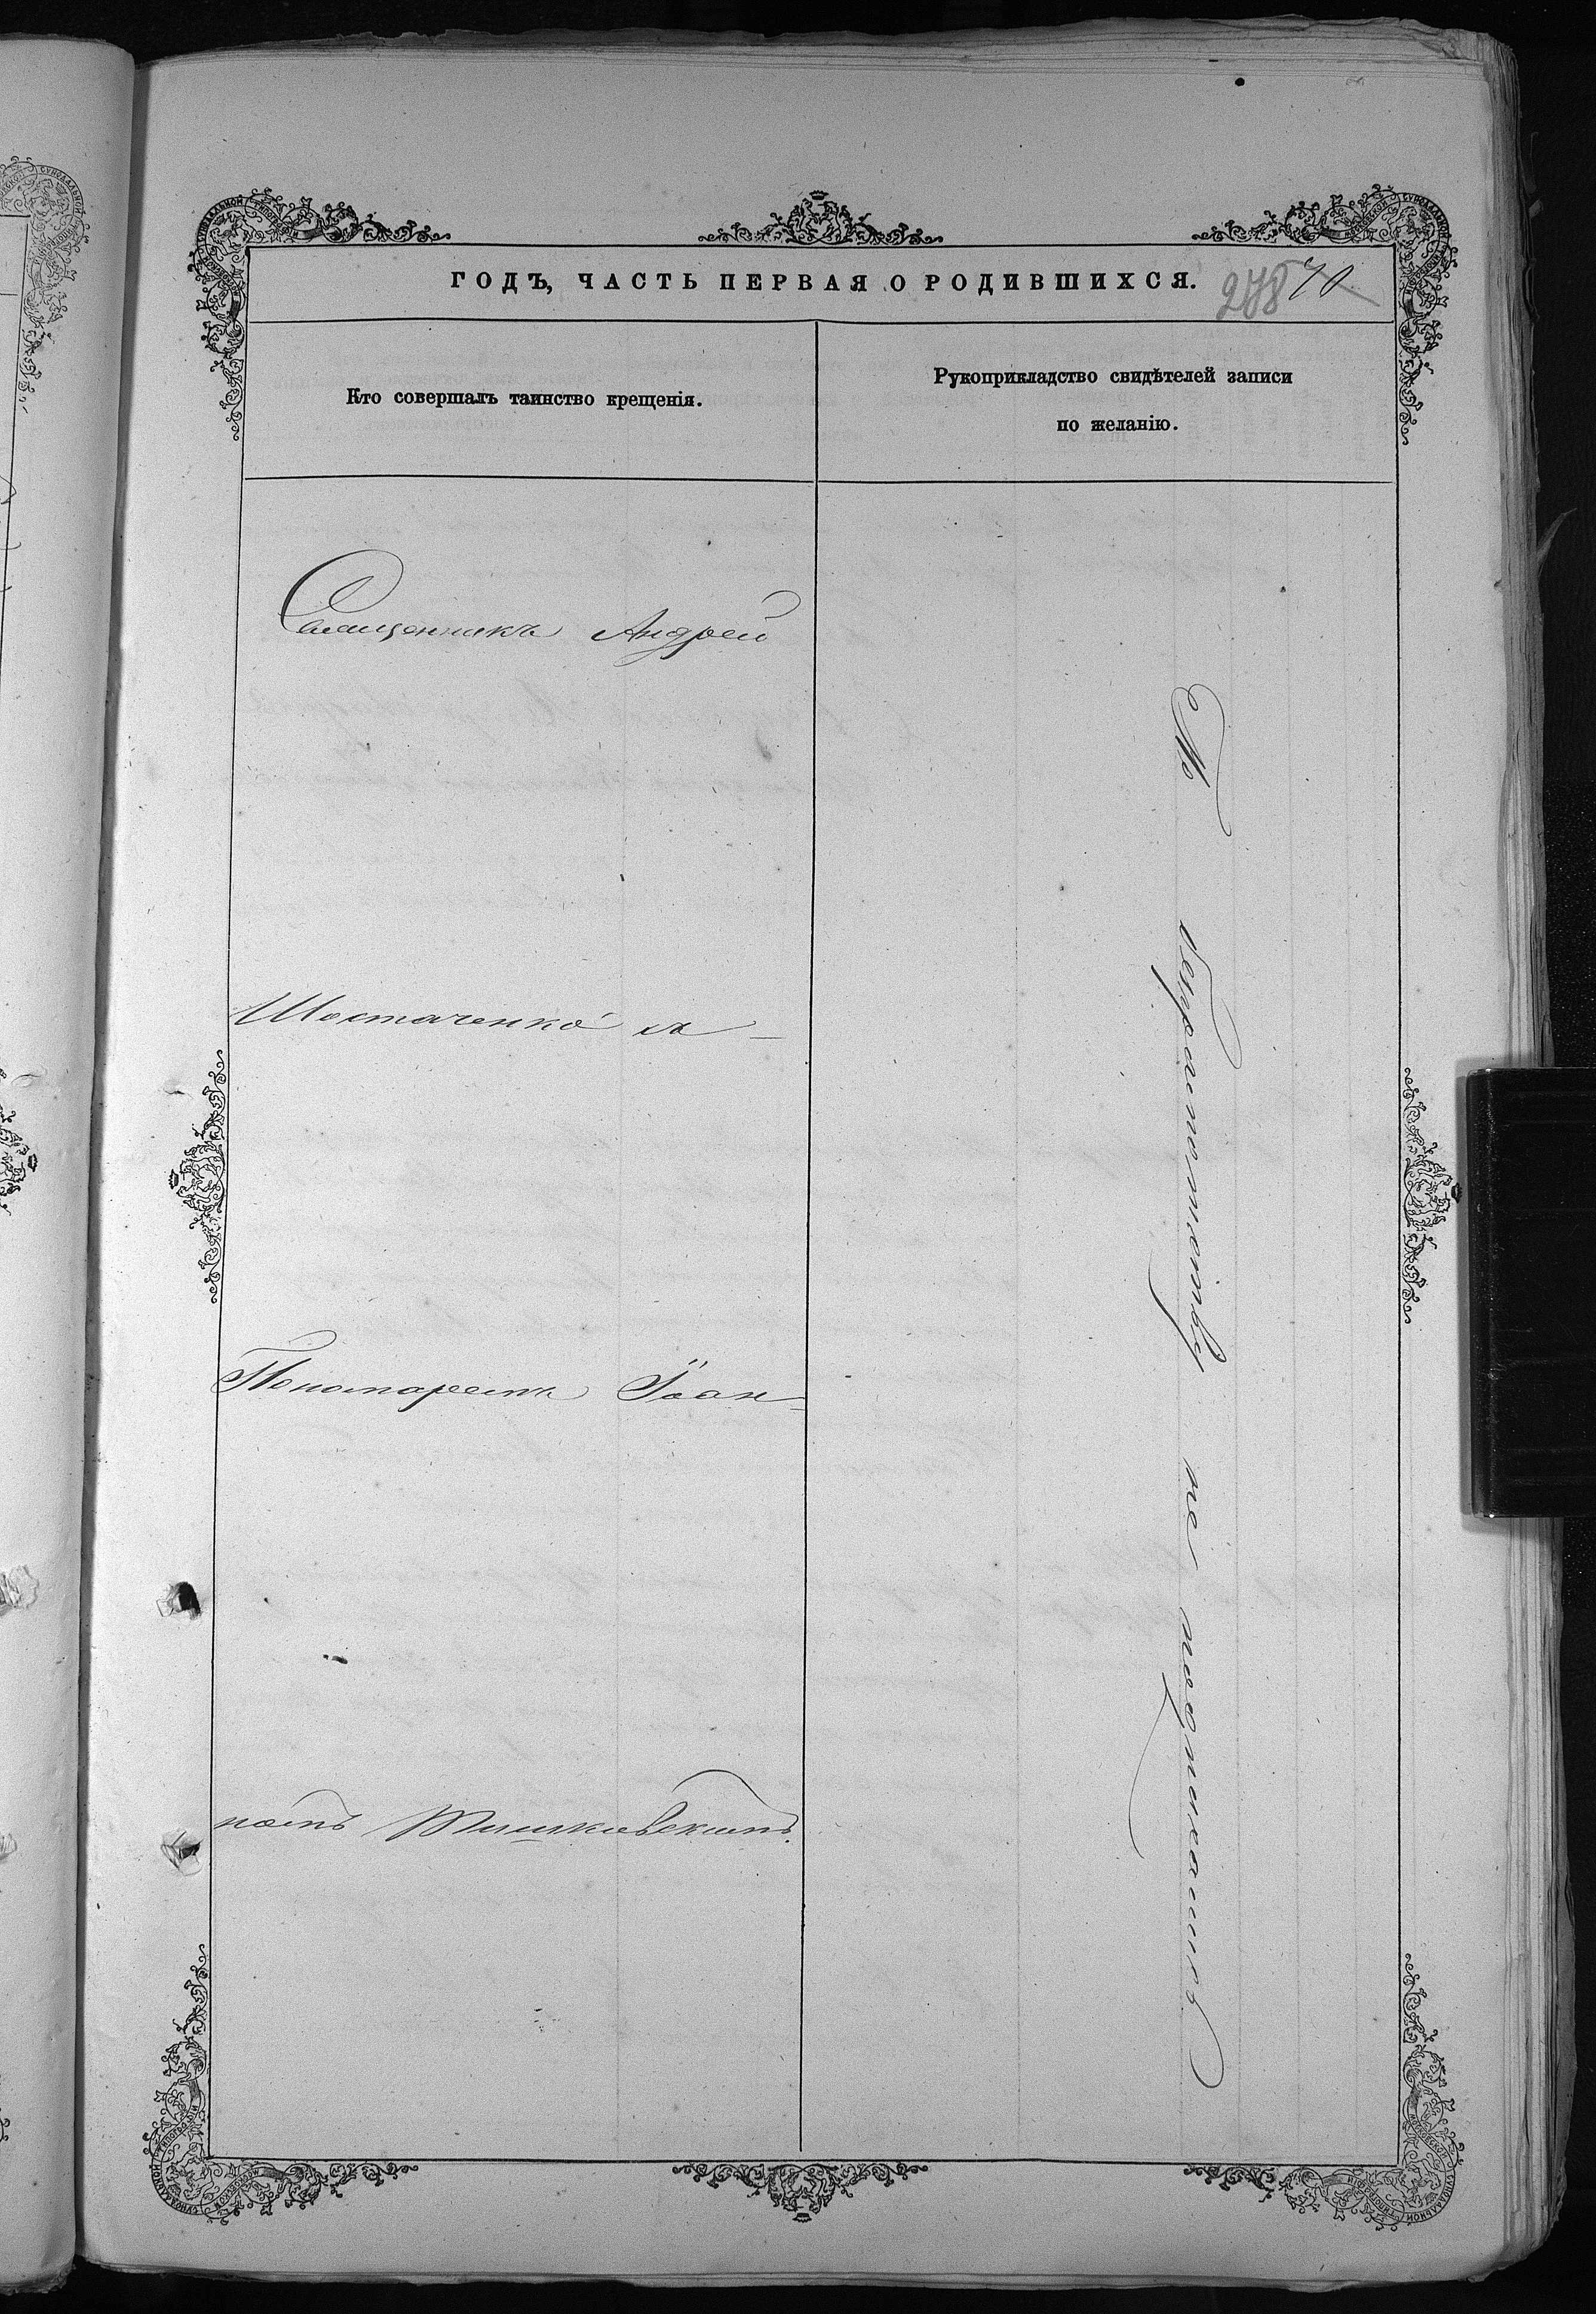 ГОДЪ, ЧАСТЬ ПЕРВАЯ О РОДИВШИХСЯ.
278 70
Кто совершалъ таинство крещенія.
Рукоприкладство свидѣтелей записи
по желанію.
Священникъ Андрей
Шостаченко съ
Пономаремъ Іоан-
номъ
По неграмотству не подписались